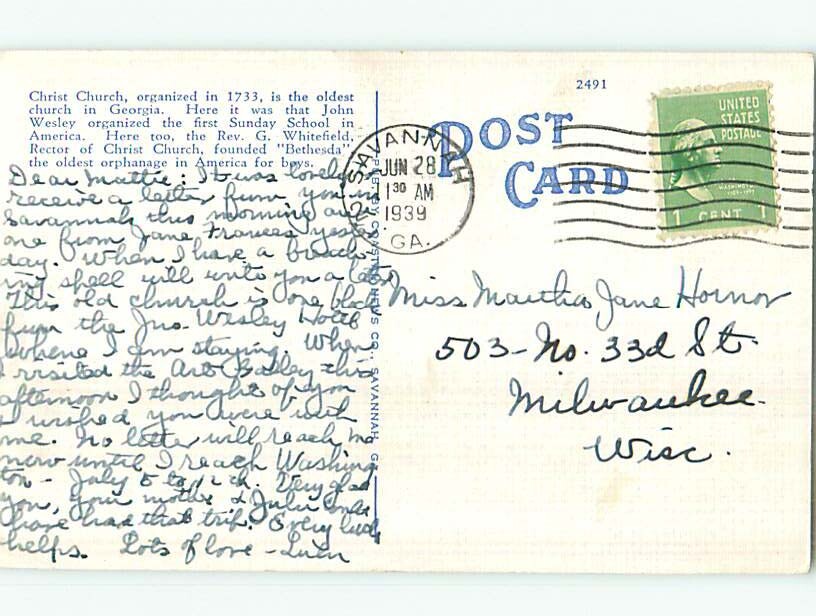 Christ Church, organized in 1733, is the oldest
church in Georgia. Here it was that John
Wesley organized the first Sunday School in
America. Here too, the Rev. G. Whitefield,
Rector of Christ Church, founded "Bethesda",
the oldest orphanage in America for boys.
Dear Mattie: It was lovely
receive a letter from you in
Savannah this morning and
one from Jane Frances yester
day. When I have a breath-
ing spell will write you a letter
This old church is one block
from the Jno. Wesley Hotel
where I am staying. When
I visited the Art Gallery this
afternoon I thought of you
I wished you were with
me. No letter will reach me
now until I reach Washing
ton - July 5 to 12th. Very glad
you, your mother & Julia
have had that trip. Every little
helps. Lots of love -
PUB. BY COASTAL NEWS CO., SAVANNAH, G
2491
POST
CARD
SAVANNAH
JUN 28
1 30 AM
1939
GA.
UNITED
STATES
POSTAGE
WASHINGTON
1 CENT 1
Miss Martha Jane Hornor
503 - No. 33d St.
Milwaukee.
Wisc.